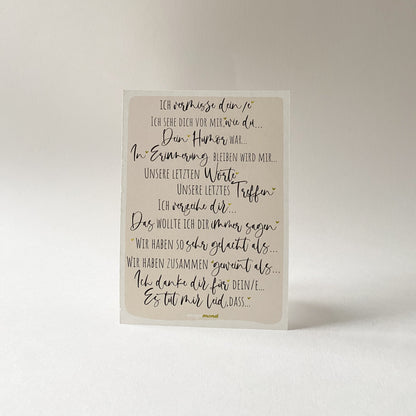 Ich vermisse dein/e
Ich sehe dich vor mir, wie du...
Dein Humor war...
In Erinnerung bleiben wird mir...
Unsere letzten Worte
Unsere letztes Treffen
Ich verzeihe dir...
Das wollte ich dir immer sagen
Wir haben so sehr gelacht als...
Wir haben zusammen geweint als...
Ich danke dir für dein/e...
Es tut mir leid, dass...